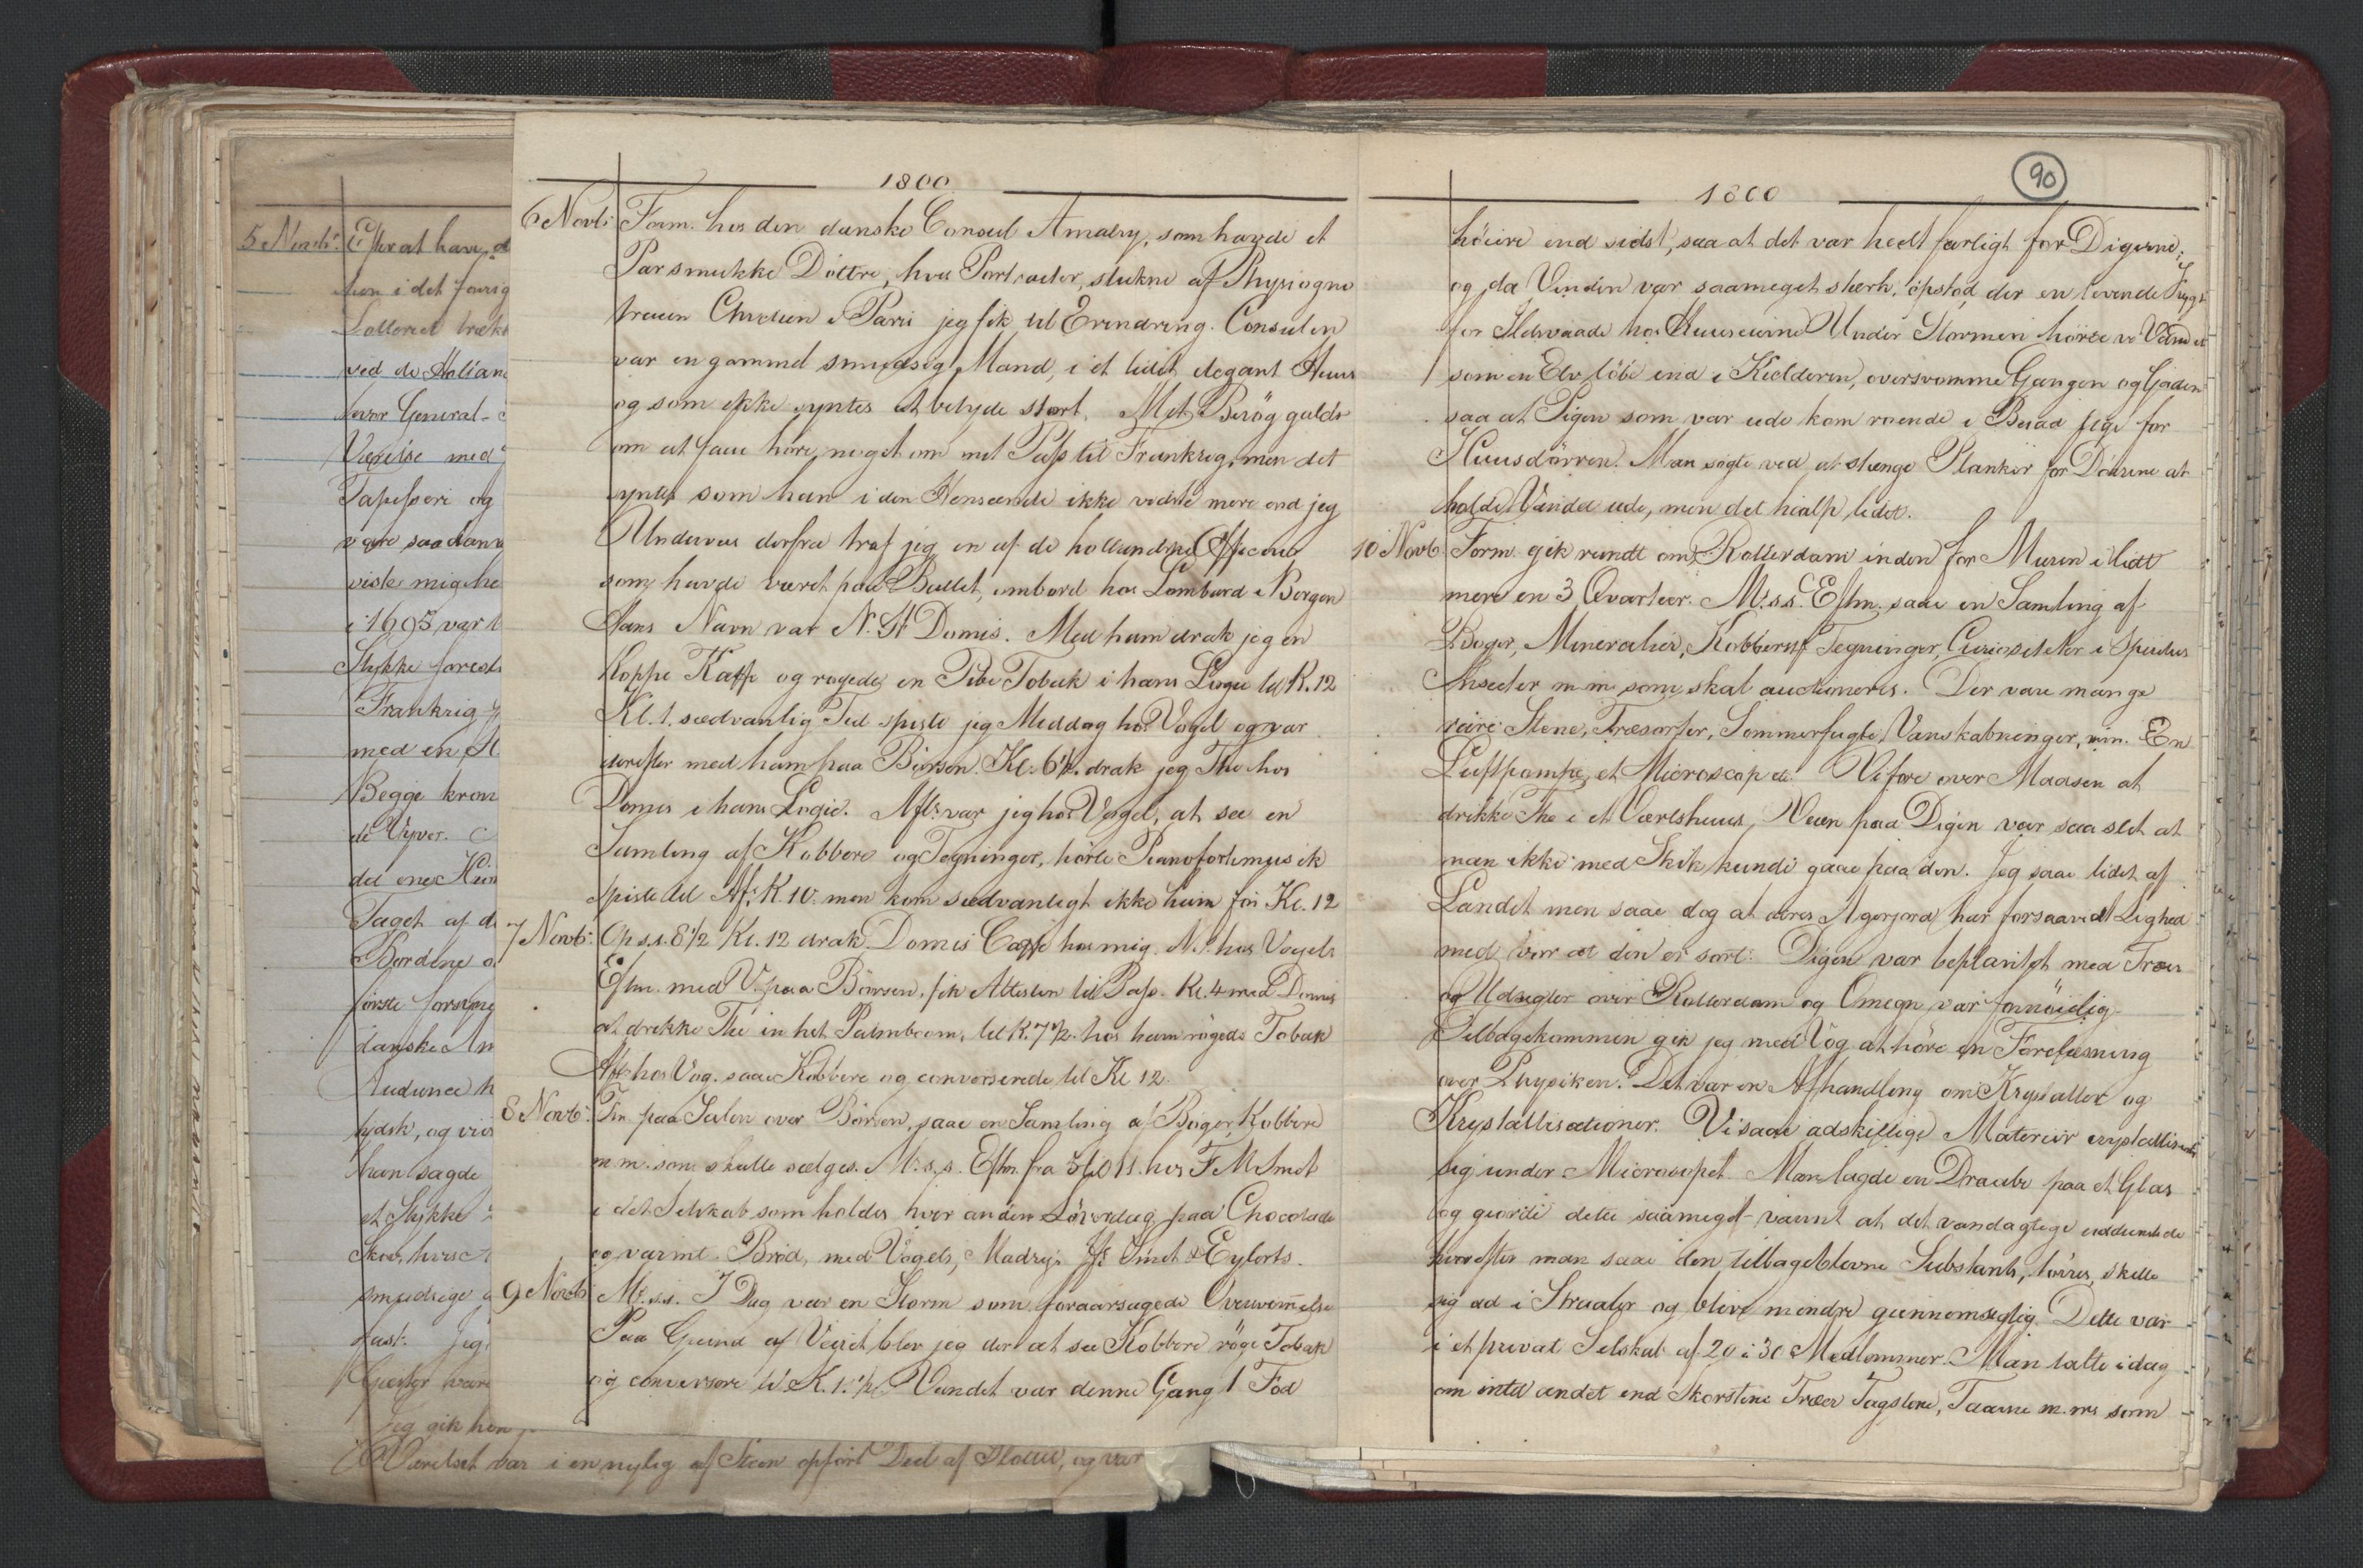 5 Novb: Efter at have
hen i det
Lotteriet trækk
ved de Hollan
General-
Værelse med
Tapesseri og
være saadan
viste mig he
i 1605 var
Stykke forest
Frankrig
med en
Begge kron
de Vyver.
det ene
Taget af d
Bordene
første
danske
Audience
tydsk, og
han sagde
et Stykke
Skov, hvis
smudsige
fast. Jeg
Giester vare
Jeg gik hen
Værelset var i en nylig af Steen opført Deel af Slottet, og var
1800
6 Novb: Form. hos den danske Consul Amalry, som havde et
Par smukke Döttre, hvis Portraiter, stukne af Physiogno
traceen Chretien i Paris jeg fik til Erindring. Consulen
var en gammel smudsig Mand, i et lidet elegant Huus
og som ikke syntes at betyde stort. Mit Besög gjaldt
om at faae höre noget om mit Pass til Frankrig, men det
syntes som han i den Henseende ikke vidste mere end jeg
Underveis derfra traf jeg en af de hollandske Officerer
som havde været paa Ballet, ombord hos Lombard i Bergen
Hans Navn var N. St Domis. Med ham drak jeg en
Koppe Kaffe og rögede en Pibe Tobak i hans Logie til K. 12
Kl. 1. sædvanlig Tid spiste jeg Middag hos Vogel og var
derefter med ham paa Börsen. Kl. 6½. drak jeg The hos
Domis i hans Logie. Aft: var jeg hos Vogel, at see en
Samling af Kobbere og Tegninger, hörte Pianofortemusik
spiste til Af: K. 10. men kom sædvanligt ikke hiem för Kl. 12
7 Novb: Op s. s. 8½ Kl. 12 drak Domis Caffe hos mig. M: hos Vogels
Eftm. med V. paa Börsen, fik Attesten til Pass. Kl. 4 med Domis
at drikke The in het Palmboom, til K. 7½. hos ham rögede Tobak
Aft. hos Vog. saae Kobbere og converserede til Kl 12.
8 Novb: Fm paa Salen over Börsen, saae en Samling af Böger Kobbere
m. m. som skulle sælges. M: s. s. Eftm. fra 5 til 11. hos F. M Smet
i det Selskab som holdes hver anden Löverdag paa Chocolade
og varmt Bröd, med Vogels, Madrys Smet & Eylerts.
9 Novb: M: s. s. I Dag var en Storm som foraarsagede Oversvømelse
Paa Grund af Veiret blev jeg der at see Kobbere röge Tobak
og conversere til K. 1½. Vandet var denne Gang 1 Fod
90
1800
höiere end sidst, saa at det var heelt farligt for Digerne;
og da Vinden var saameget stærk, opstod der en levende Frygt
for Ildsvaade hos Huuseierne Under Stormen hörte vi Vandet
som en Elv löbe ind i Kielderen, oversvömme Gangen og Gaden
saa at Pigen som var ude kom roende i Baad lige for
Huusdörren. Man sögte ved at slænge Planker for Dörrene at
holde Vandet ude, men det hialp lidet.
10 Novb. Form. gik rundt om Rotterdam inden for Muren i lidt
mere en 3 Qvarteer. M: s. s. Eftm. saae en Samling af
Böger, Mineralier, Kobberst Tegninger, Curiositeter i Spiritus
Insecter m m som skal auctioneres. Der vare mange
rare Stene, Træsorter, Sommerfugle, Vanskabninger, m.m. En
Luftpompe, et Microscop etc. Vi fore over Maasen at
drikke The i et Værtshuus, Veien paa Digen var saa slet at
man ikke med Skik kunde gaae paa den. Jeg saae lidet af
Landet men saae dog at deres Agerjord har forsaavidt Lighed
med vor at den er sort. Digen var beplantet med Træer
og Udsigter over Rotterdam og Omegn var fornöielig
Tilbagekommen gik jeg med Vog. at höre en Forelæsning
over Physiken. Det var en Afhandling om Krystaller og
Krystallisationer. Vi saae adskillige Materier crystallisere
sig under Microscopet. Man lagde en Draabe paa et Glas
og giorde dette saameget varmt at det vandagtige uddunstede
hvorefter man saae den tilbageblevne Substants, törres, skille
sig ad i Straaler og blive mindre giennemsigtig. Dette var
i et privat Selskab af 20 a 30 Medlemmer. Man talte idag
om intet andet end Skorstene Træer Tagstene, Taarne m. m. som